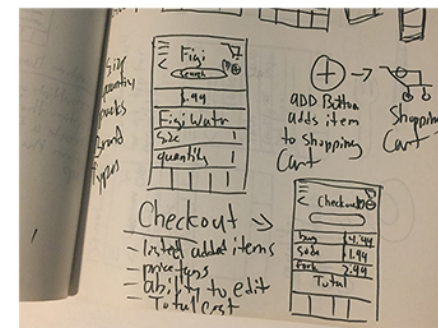 Size
quantity
Brand
Types
Figi
search
$.99
Figi Watr
Size 1
quantity 1
ADD Button
adds item
to shopping
Cart
Shopping
Cart
Checkout
- listed added items
- ability to edit
- Total Cost
Checkout
soda 1.99
fork 2.99
Total